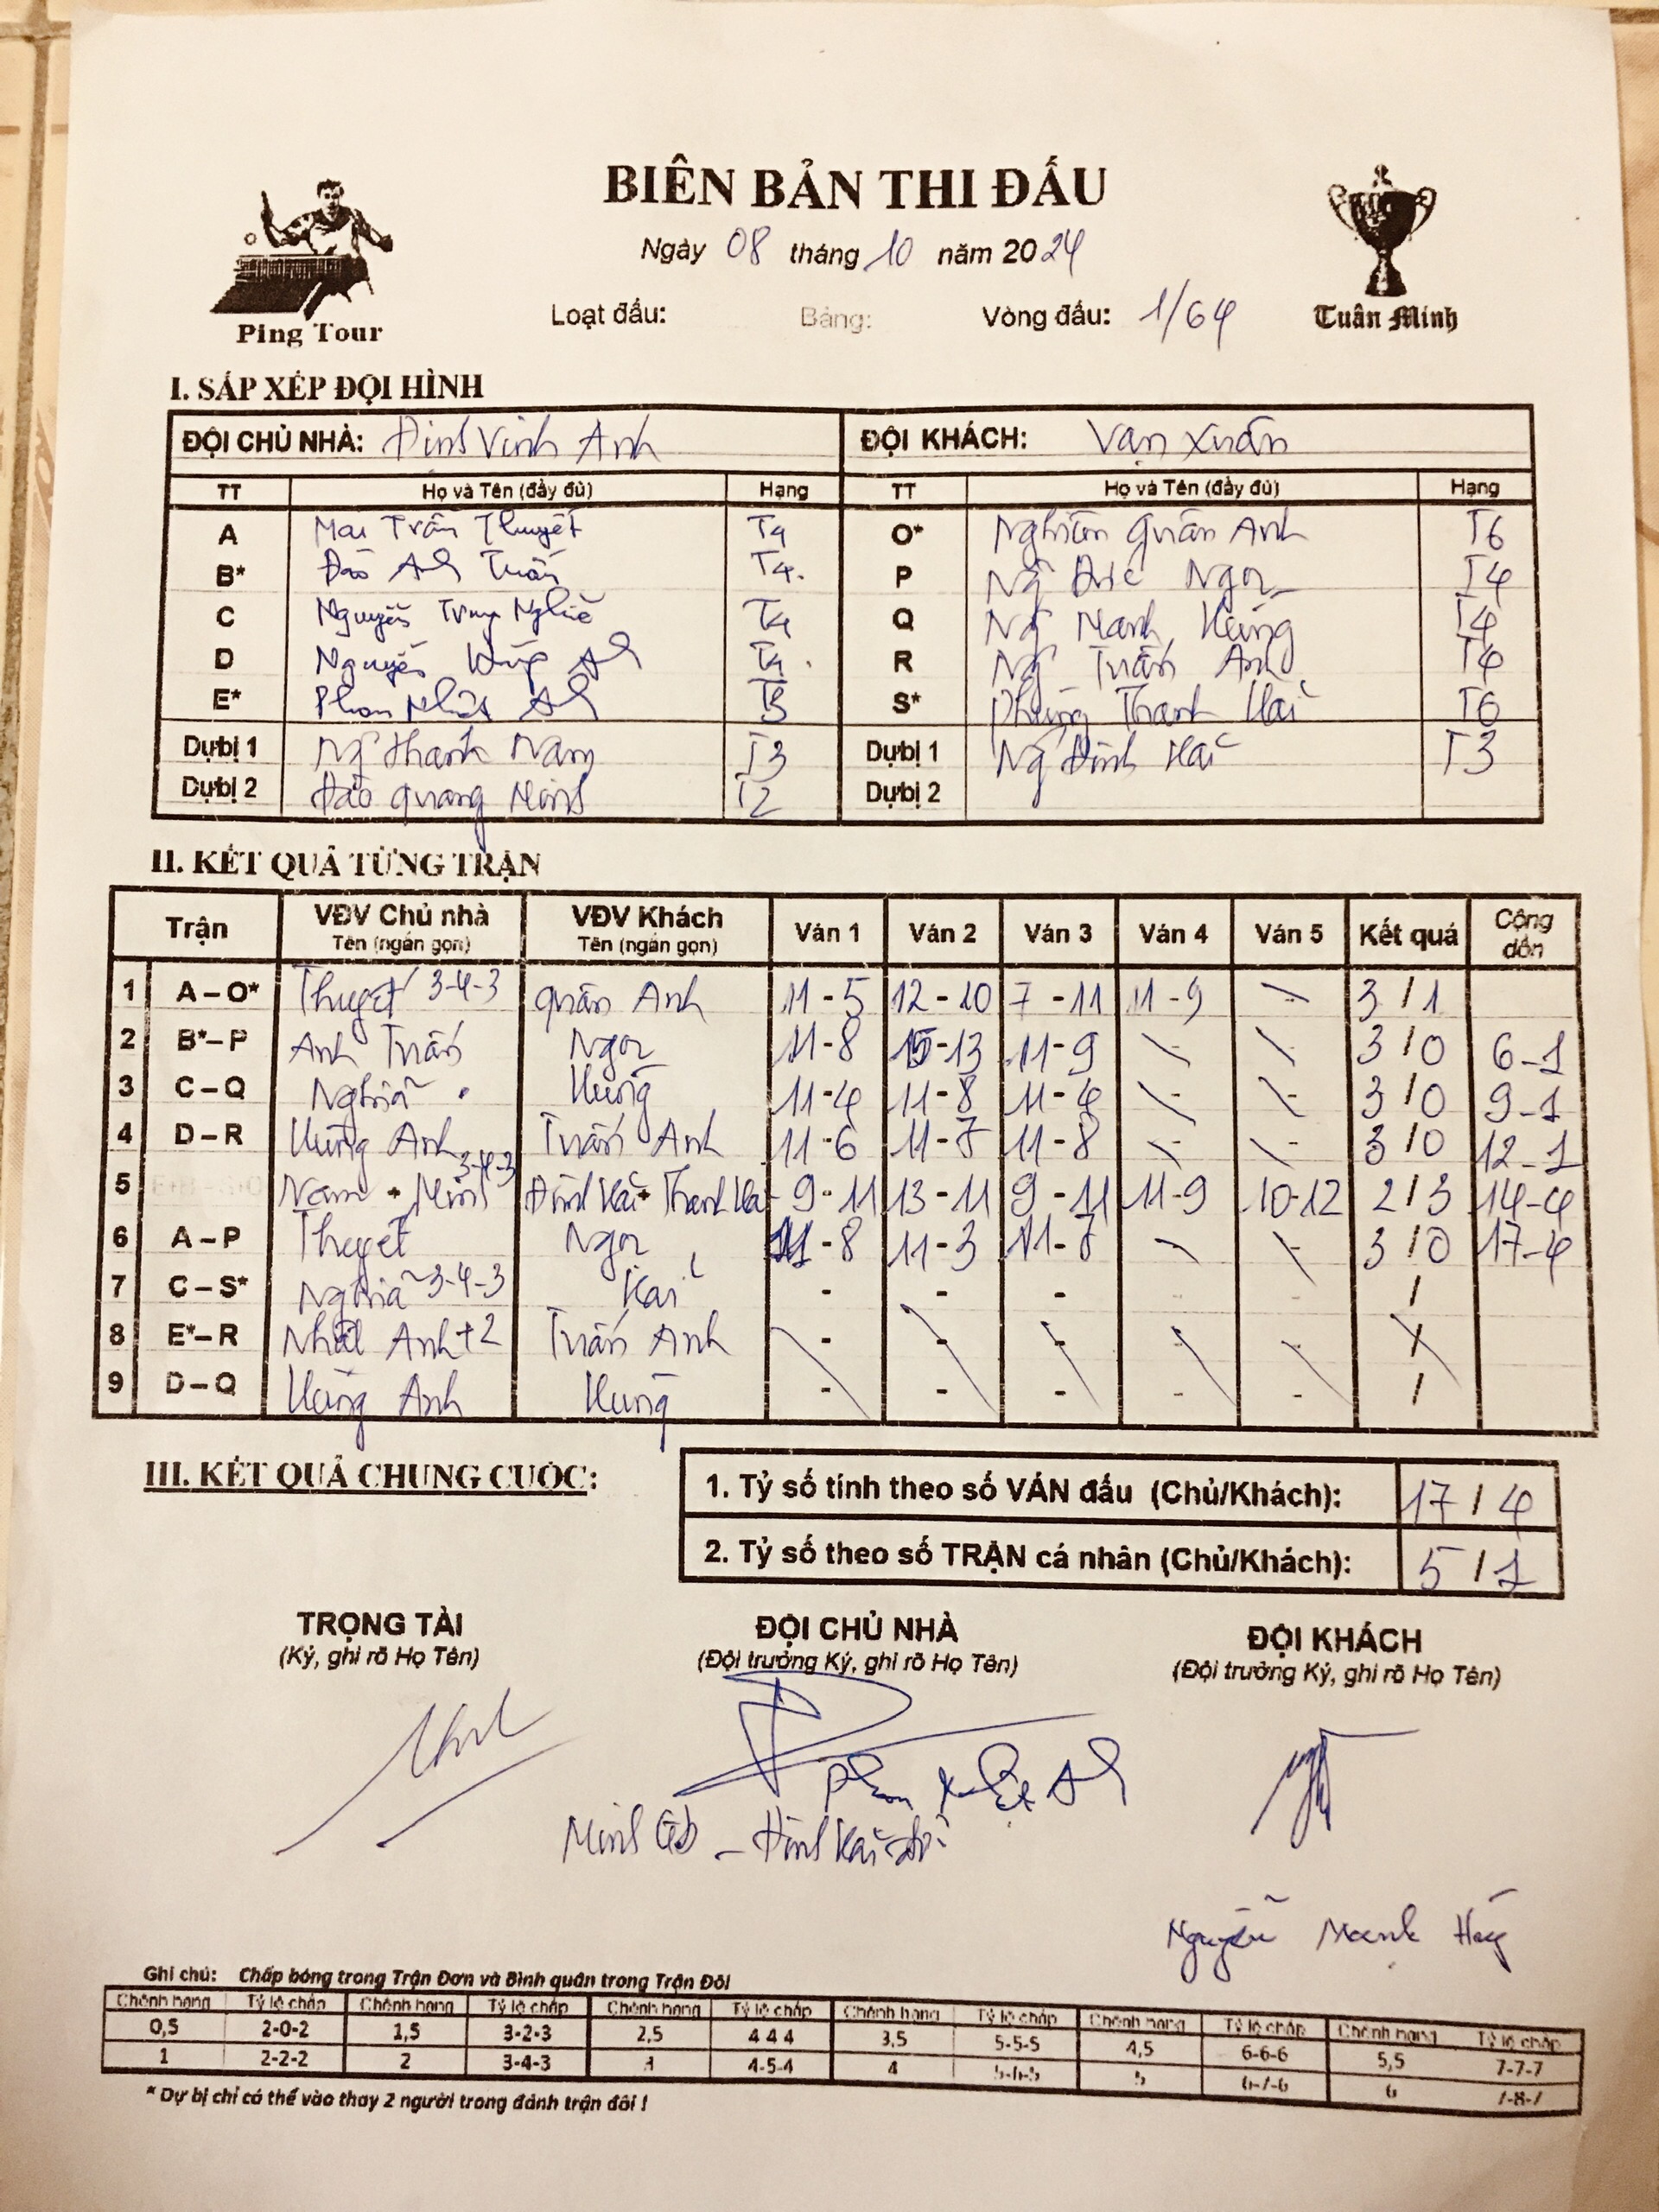 BIÊN BẢN THI ĐẤU
Ngày 08 tháng 10 năm 2024
Ping Tour
Loạt đấu: Bảng: Vòng đấu: 1/64
Tuân Minh
I. SẮP XẾP ĐỘI HÌNH
ĐỘI CHỦ NHÀ: Đinh Vinh Anh ĐỘI KHÁCH: Vạn Xuân
TT Họ và Tên (đầy đủ) Hạng TT Họ và Tên (đầy đủ) Hạng
A Mai Trần Thuyết T4 O* Nghiêm Quân Anh T6
B* Đào Anh Tuấn T4. P Ng Đức Ngọc T4
C Nguyễn Trung Nghĩa T4 Q Ng Mạnh Hùng T4
D Nguyễn Anh T4. R Ng Tuấn Anh T4
E* Phan Nhật Anh S* Phùng Thanh Hải T6
Dự bị 1 Ng Thanh Nam T3 Dự bị 1 Ng Đình Hải T3
Dự bị 2 Đào Quang Minh T2 Dự bị 2
II. KẾT QUẢ TỪNG TRẬN
Trận VĐV Chủ nhà VĐV Khách Ván 1 Ván 2 Ván 3 Ván 4 Ván 5 Kết quả Cộng dồn
Tên (ngắn gọn) Tên (ngắn gọn)
1 A – O* Thuyết 3-4-3 Quân Anh 11 - 5 12 - 10 7 - 11 11 - 9 3 / 1
2 B* – P Anh Tuấn Ngọc 11 - 8 15 - 13 11 - 9 3 / 0 6-1
3 C – Q Nghĩa Hùng 11 - 4 11 - 8 11 - 4 3 / 0 9-1
4 D – R Hùng Anh Tuấn Anh 11 - 6 11 - 7 11 - 8 3 / 0 12-1
5 Nam + Minh 3-4-3 Đình Hải + Thanh Hải 9 - 11 13 - 11 9 - 11 11 - 9 10-12 2 / 3 14-4
6 A – P Thuyết Ngọc 11 - 8 11 - 3 11 - 7 3 / 0 17-4
7 C – S* Nghĩa 3-4-3 Hải - - - - - /
8 E* – R Nhật Anh +2 Tuấn Anh - - - - - /
9 D – Q Hùng Anh Hùng - - - - - /
III. KẾT QUẢ CHUNG CUỘC:
1. Tỷ số tính theo số VÁN đấu (Chủ/Khách): 17 / 4
2. Tỷ số theo số TRẬN cá nhân (Chủ/Khách): 5 / 1
TRỌNG TÀI ĐỘI CHỦ NHÀ ĐỘI KHÁCH
(Ký, ghi rõ Họ Tên) (Đội trưởng Ký, ghi rõ Họ Tên) (Đội trưởng Ký, ghi rõ Họ Tên)
Phan Nhật Anh
Minh - Đình Hải
Nguyễn Mạnh Hùng
Ghi chú: Chấp bóng trong Trận Đơn và Bình quân trong Trận Đôi
Chênh hạng Tỷ lệ chấp Chênh hạng Tỷ lệ chấp Chênh hạng Tỷ lệ chấp Chênh hạng Tỷ lệ chấp Chênh hạng Tỷ lệ chấp Chênh hạng Tỷ lệ chấp
0,5 2-0-2 1,5 3-2-3 2,5 4 4 4 3,5 5-5-5 4,5 6-6-6 5,5 7-7-7
1 2-2-2 2 3-4-3 3 4-5-4 4 5-6-5 5 6-7-6 6 7-8-7
* Dự bị chỉ có thể vào thay 2 người trong đánh trận đôi !